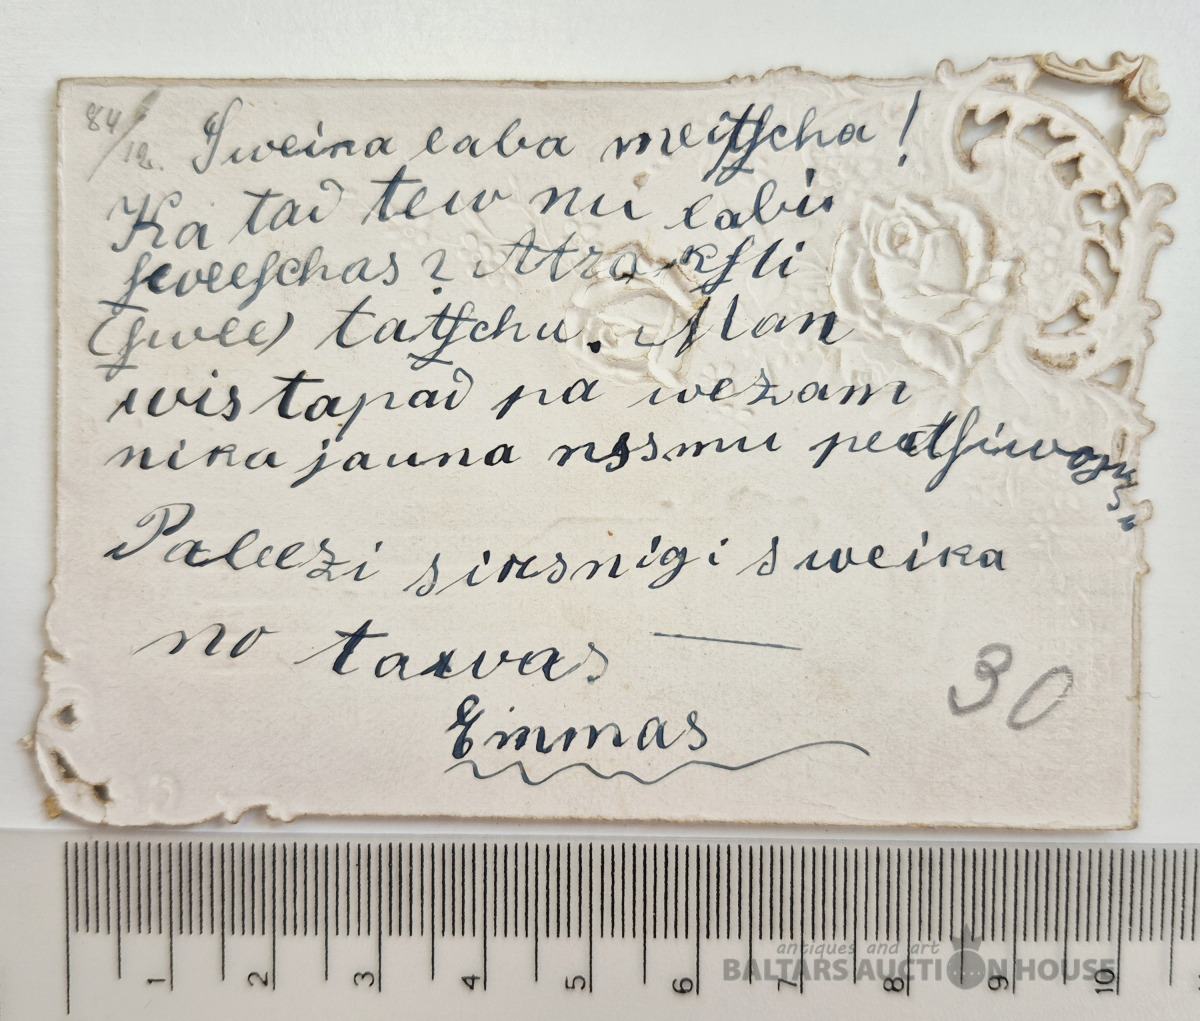 84/12.
Sweika laba meitſcha!
Kā tad tew nu labi
ſweeſchas? Atrakſti
(ſwee) tatſchu. Man
wis tapad pa wezam
nika jauna
Paleezi sirsnigi sweika
no tawas —
Emmas
30
1 2 3 4 5 6 7 8 9 10
antiques and art
BALTARS AUCTION HOUSE